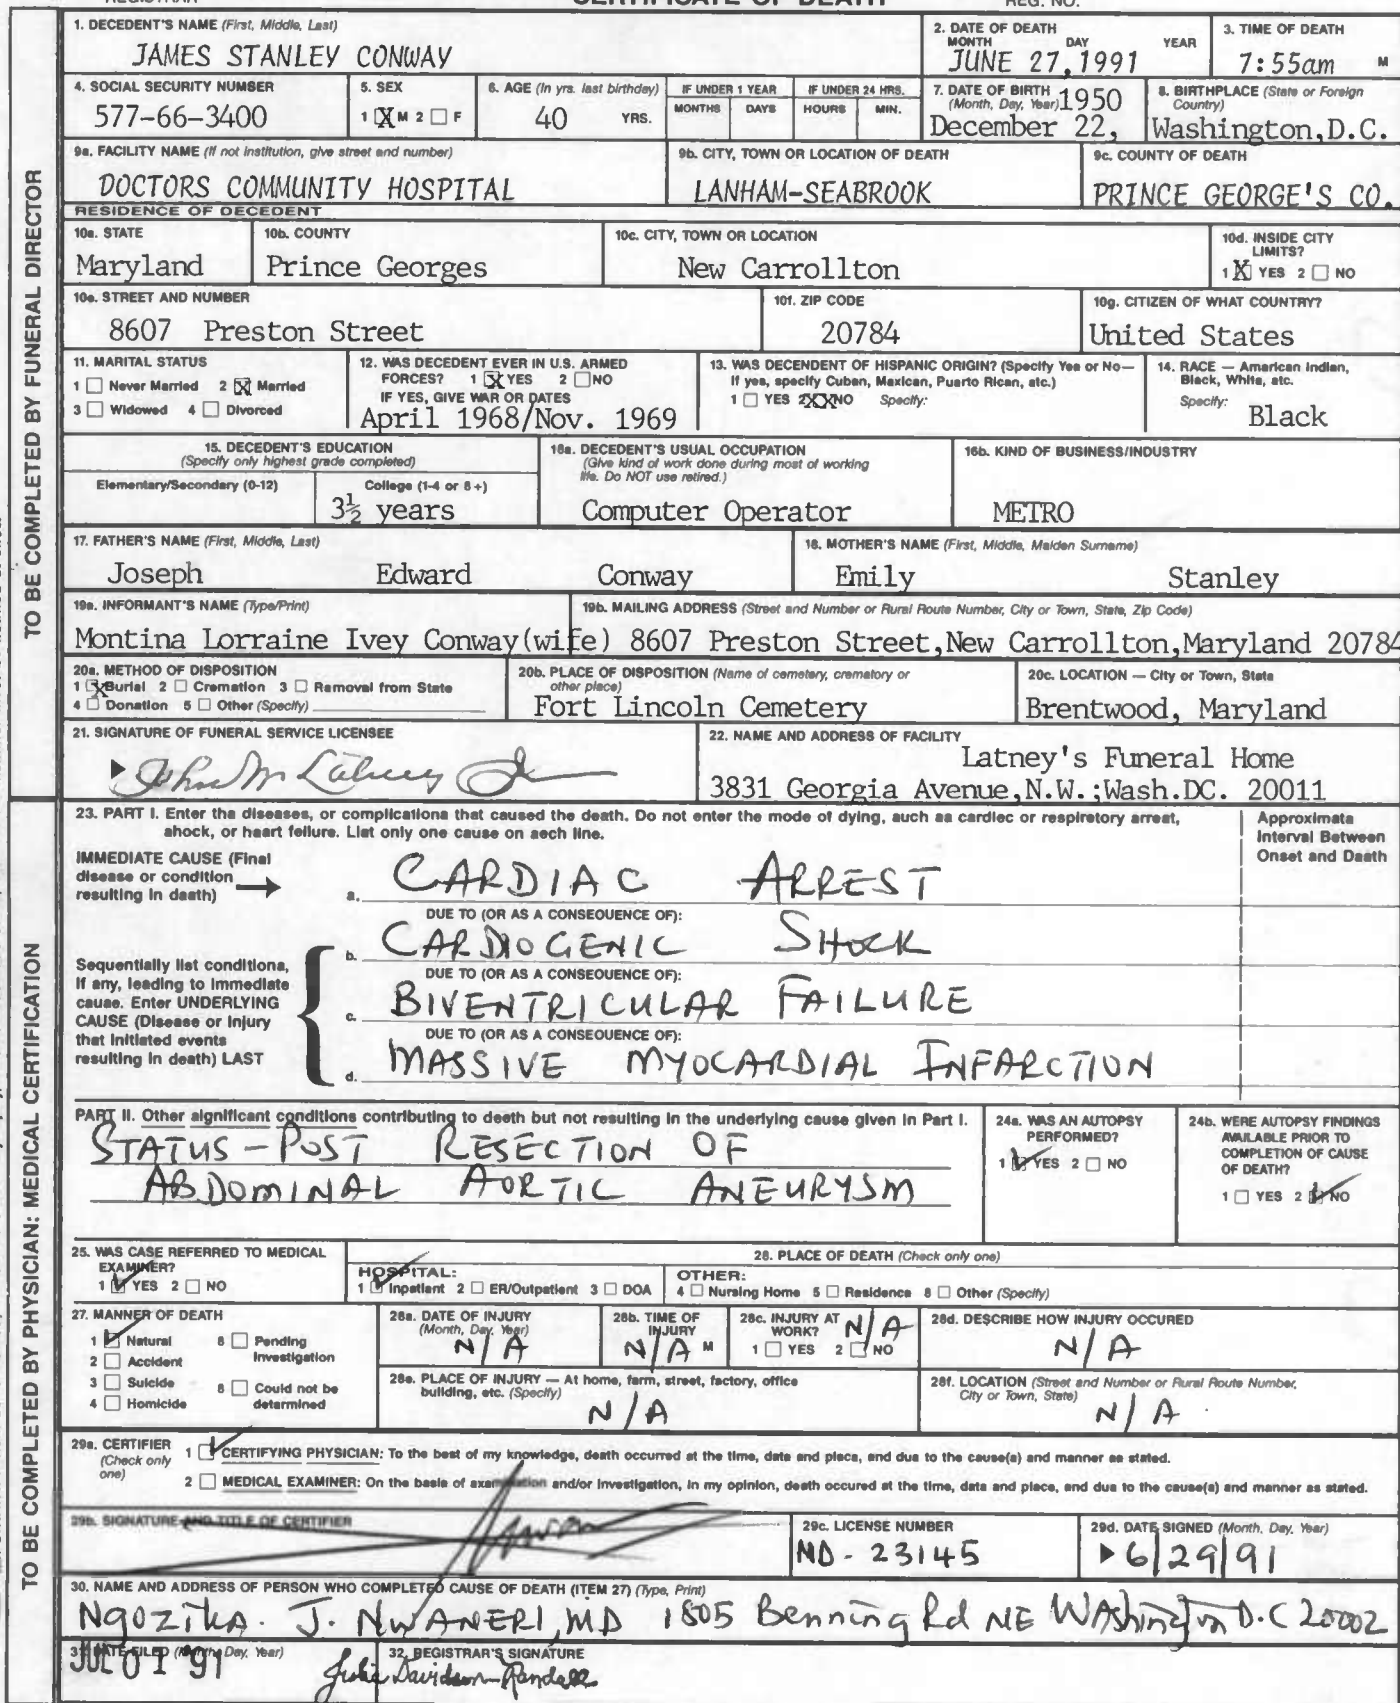 CERTIFICATE OF DEATH
REG. NO.
1. DECEDENT'S NAME (First, Middle, Last)
JAMES STANLEY CONWAY
2. DATE OF DEATH
MONTH DAY YEAR
JUNE 27,1991
3. TIME OF DEATH
7:55am M
4. SOCIAL SECURITY NUMBER
577-66-3400
5. SEX
1 X M 2 F
6. AGE (In yrs. last birthday)
40 YRS.
IF UNDER 1 YEAR
MONTHS DAYS
IF UNDER 24 HRS.
HOURS MIN.
7. DATE OF BIRTH
(Month, Day, Year) 1950
December 22,
8. BIRTHPLACE (State or Foreign
Country)
Washington,D.C.
9a. FACILITY NAME (If not institution, give street and number)
DOCTORS COMMUNITY HOSPITAL
9b. CITY, TOWN OR LOCATION OF DEATH
LANHAM-SEABROOK
9c. COUNTY OF DEATH
PRINCE GEORGE'S CO.
RESIDENCE OF DECEDENT
10a. STATE
Maryland
10b. COUNTY
Prince Georges
10c. CITY, TOWN OR LOCATION
New Carrollton
10d. INSIDE CITY
LIMITS?
1 X YES 2 NO
10e. STREET AND NUMBER
8607 Preston Street
10f. ZIP CODE
20784
10g. CITIZEN OF WHAT COUNTRY?
United States
11. MARITAL STATUS
1 Never Married 2 X Married
3 Widowed 4 Divorced
12. WAS DECEDENT EVER IN U.S. ARMED
FORCES? 1 X YES 2 NO
IF YES, GIVE WAR OR DATES
April 1968/Nov. 1969
13. WAS DECENDENT OF HISPANIC ORIGIN? (Specify Yes or No—
If yes, specify Cuban, Mexican, Puerto Rican, etc.)
1 YES 2 XX NO Specify:
14. RACE — American Indian,
Black, White, etc.
Specify:
Black
15. DECEDENT'S EDUCATION
(Specify only highest grade completed)
Elementary/Secondary (0-12) College (1-4 or 5+)
3½ years
16a. DECEDENT'S USUAL OCCUPATION
(Give kind of work done during most of working
life. Do NOT use retired.)
Computer Operator
16b. KIND OF BUSINESS/INDUSTRY
METRO
17. FATHER'S NAME (First, Middle, Last)
Joseph Edward Conway
18. MOTHER'S NAME (First, Middle, Maiden Surname)
Emily Stanley
19a. INFORMANT'S NAME (Type/Print)
Montina Lorraine Ivey Conway(wife)
19b. MAILING ADDRESS (Street and Number or Rural Route Number, City or Town, State, Zip Code)
8607 Preston Street,New Carrollton,Maryland 20784
20a. METHOD OF DISPOSITION
1 X Burial 2 Cremation 3 Removal from State
4 Donation 5 Other (Specify)
20b. PLACE OF DISPOSITION (Name of cemetery, crematory or
other place)
Fort Lincoln Cemetery
20c. LOCATION — City or Town, State
Brentwood, Maryland
21. SIGNATURE OF FUNERAL SERVICE LICENSEE
John M Latney Jr
22. NAME AND ADDRESS OF FACILITY
Latney's Funeral Home
3831 Georgia Avenue,N.W.;Wash.DC. 20011
TO BE COMPLETED BY FUNERAL DIRECTOR
23. PART I. Enter the diseases, or complications that caused the death. Do not enter the mode of dying, such as cardiac or respiratory arrest,
shock, or heart failure. List only one cause on each line.
Approximate
Interval Between
Onset and Death
IMMEDIATE CAUSE (Final
disease or condition
resulting in death)
a. CARDIAC ARREST
DUE TO (OR AS A CONSEQUENCE OF):
b. CARDIOGENIC SHOCK
DUE TO (OR AS A CONSEQUENCE OF):
c. BIVENTRICULAR FAILURE
DUE TO (OR AS A CONSEQUENCE OF):
d. MASSIVE MYOCARDIAL INFARCTION
Sequentially list conditions,
if any, leading to immediate
cause. Enter UNDERLYING
CAUSE (Disease or injury
that initiated events
resulting in death) LAST
PART II. Other significant conditions contributing to death but not resulting in the underlying cause given in Part I.
STATUS-POST RESECTION OF
ABDOMINAL AORTIC ANEURYSM
24a. WAS AN AUTOPSY
PERFORMED?
1 YES 2 NO
24b. WERE AUTOPSY FINDINGS
AVAILABLE PRIOR TO
COMPLETION OF CAUSE
OF DEATH?
1 YES 2 NO
25. WAS CASE REFERRED TO MEDICAL
EXAMINER?
1 YES 2 NO
26. PLACE OF DEATH (Check only one)
HOSPITAL:
1 Inpatient 2 ER/Outpatient 3 DOA
OTHER:
4 Nursing Home 5 Residence 6 Other (Specify)
27. MANNER OF DEATH
1 Natural 5 Pending
Investigation
2 Accident
3 Suicide 6 Could not be
determined
4 Homicide
28a. DATE OF INJURY
(Month, Day, Year)
N/A
28b. TIME OF
INJURY
N/A M
28c. INJURY AT
WORK? N/A
1 YES 2 NO
28d. DESCRIBE HOW INJURY OCCURED
N/A
28e. PLACE OF INJURY — At home, farm, street, factory, office
building, etc. (Specify)
N/A
28f. LOCATION (Street and Number or Rural Route Number,
City or Town, State)
N/A
29a. CERTIFIER
(Check only
one)
1 CERTIFYING PHYSICIAN: To the best of my knowledge, death occurred at the time, date and place, and due to the cause(s) and manner as stated.
2 MEDICAL EXAMINER: On the basis of examination and/or investigation, in my opinion, death occured at the time, data and place, and due to the cause(s) and manner as stated.
29b. SIGNATURE AND TITLE OF CERTIFIER
29c. LICENSE NUMBER
MD-23145
29d. DATE SIGNED (Month, Day, Year)
6/29/91
30. NAME AND ADDRESS OF PERSON WHO COMPLETED CAUSE OF DEATH (ITEM 27) (Type, Print)
Ngozika. J. NWANERI, MD 1805 Benning Rd NE WAshington D.C 20002
31. DATE FILED (Month, Day, Year)
JUL 01 91
32. REGISTRAR'S SIGNATURE
Julia Davidson-Randall
TO BE COMPLETED BY PHYSICIAN: MEDICAL CERTIFICATION